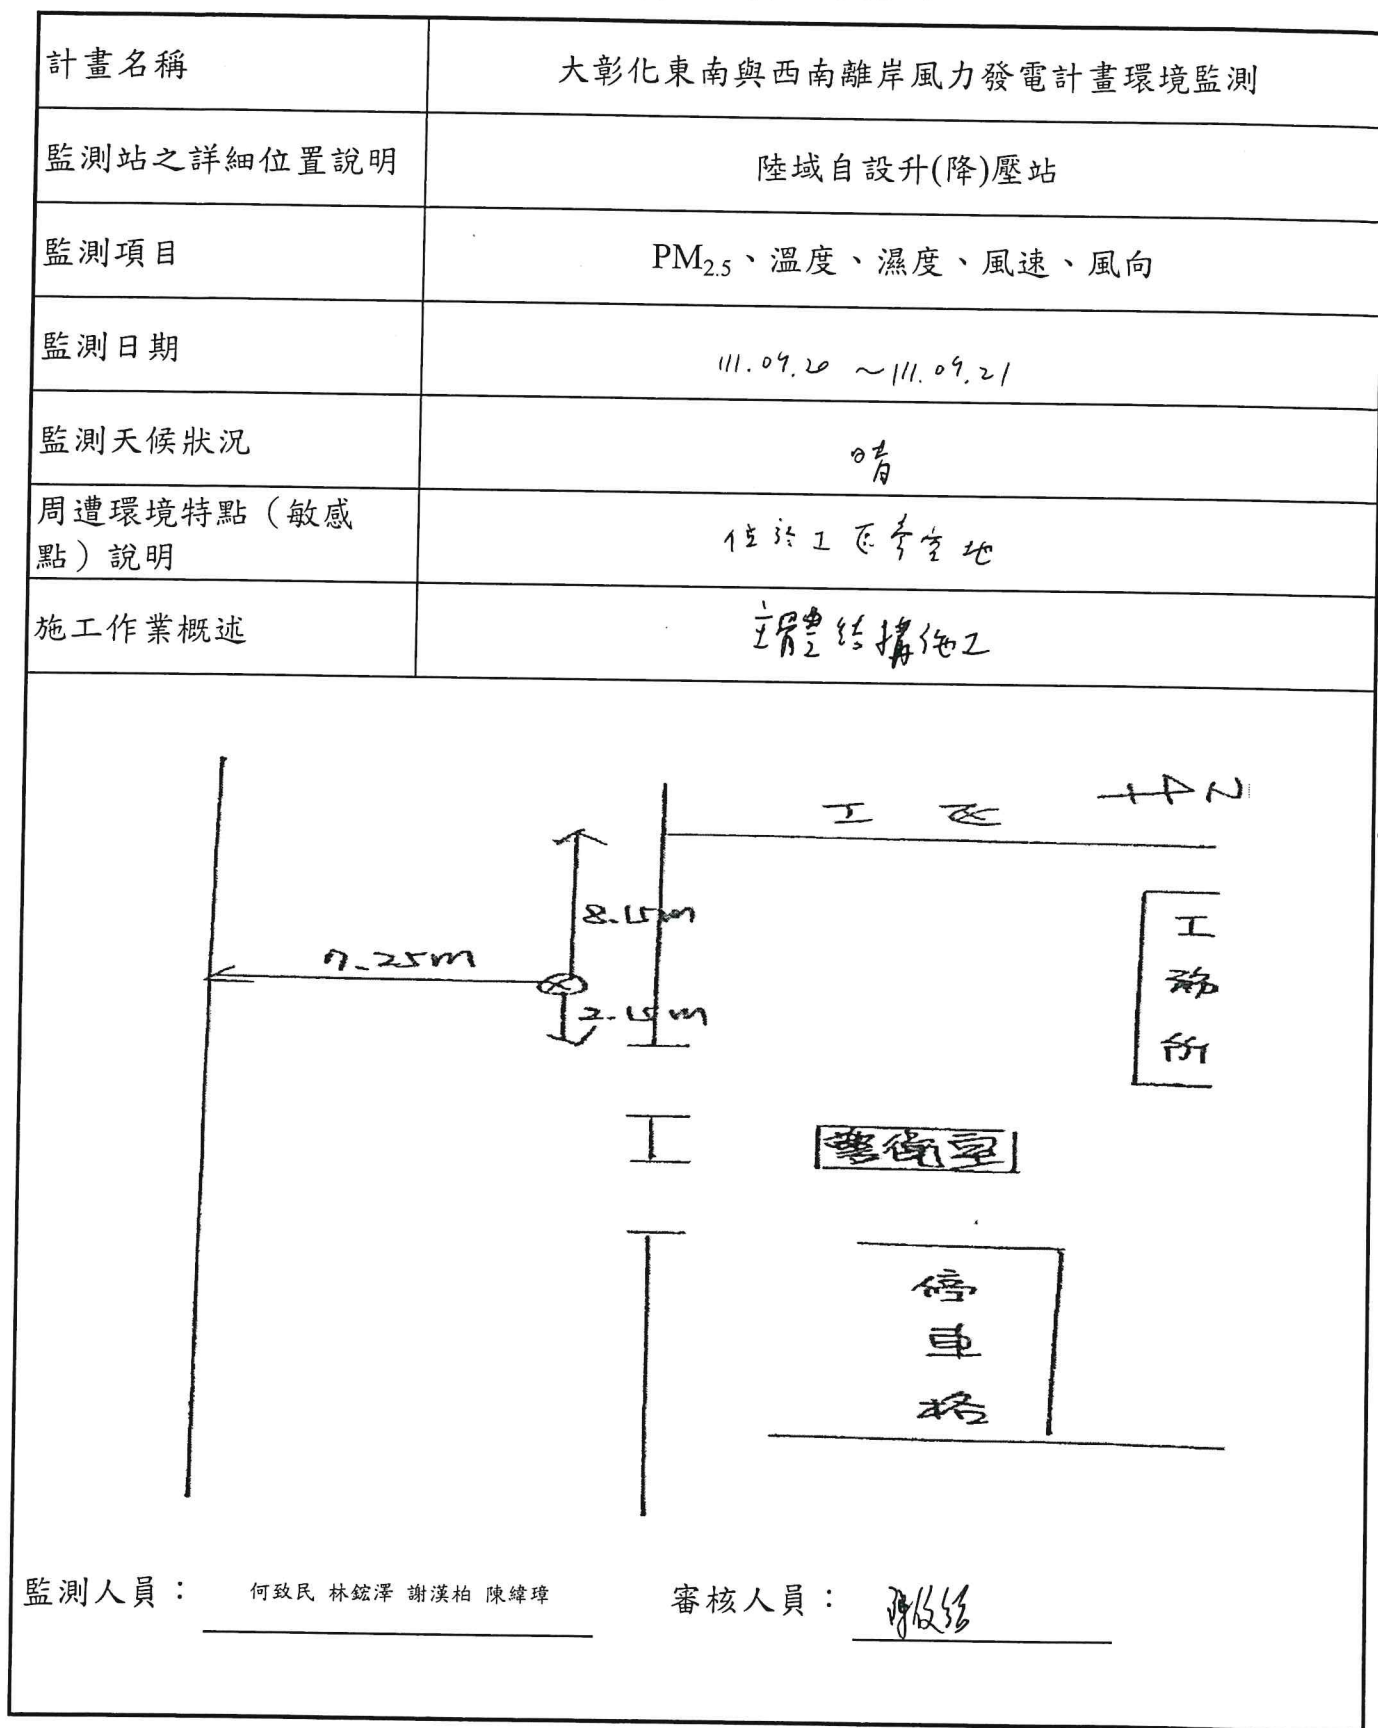 計畫名稱
大彰化東南與西南離岸風力發電計畫環境監測
監測站之詳細位置說明
陸域自設升(降)壓站
監測項目
PM2.5、溫度、濕度、風速、風向
監測日期
111.09.20 ~ 111.09.21
監測天候狀況
晴
周遭環境特點（敏感
點）說明
位於工區旁空地
施工作業概述
主體結構施工
工 區
N
8.15m
7.25m
2.15m
工
務
所
警衛室
停
車
格
監測人員：
何致民 林鋐澤 謝漢柏 陳緯璋
審核人員：